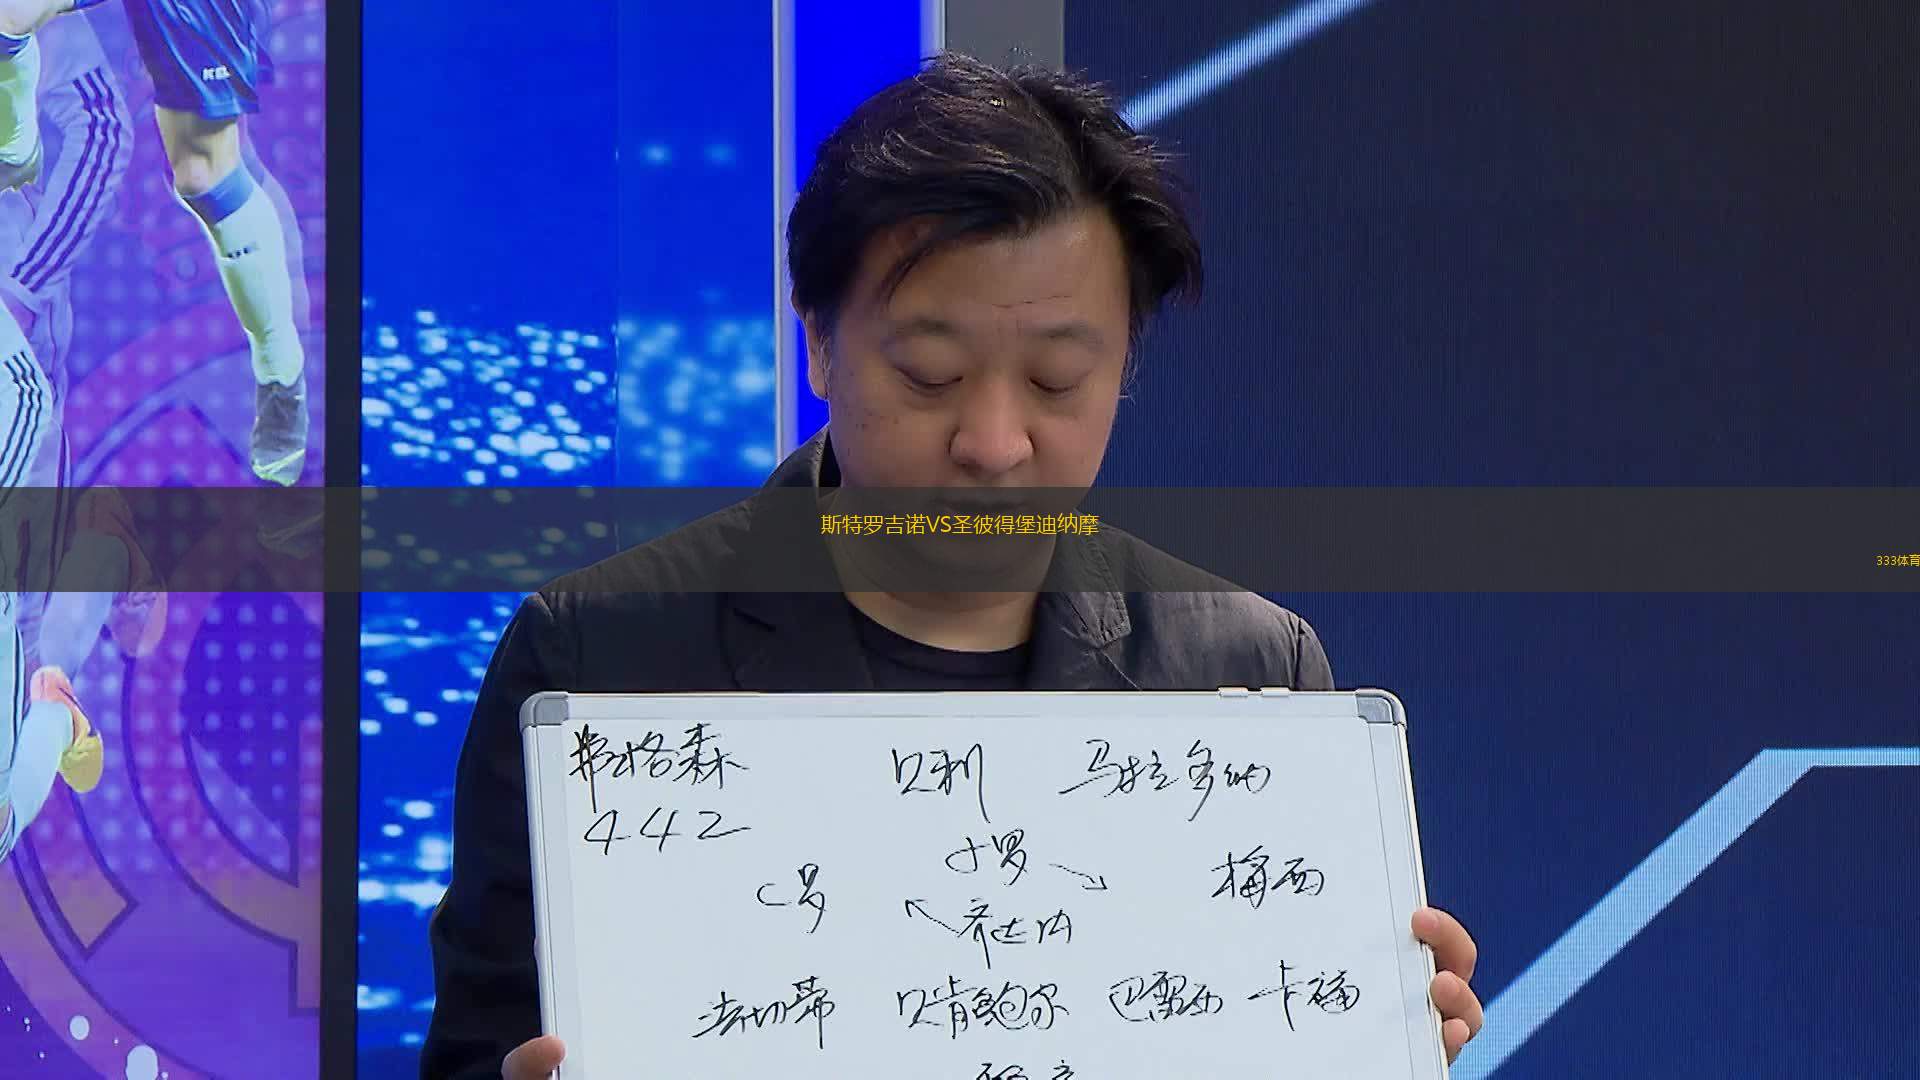 斯特罗吉诺VS圣彼得堡迪纳摩
333体育
弗格森 贝利 马拉多纳
442
小罗
C罗 梅西
齐达内
法切蒂 贝肯鲍尔 巴雷西 卡福